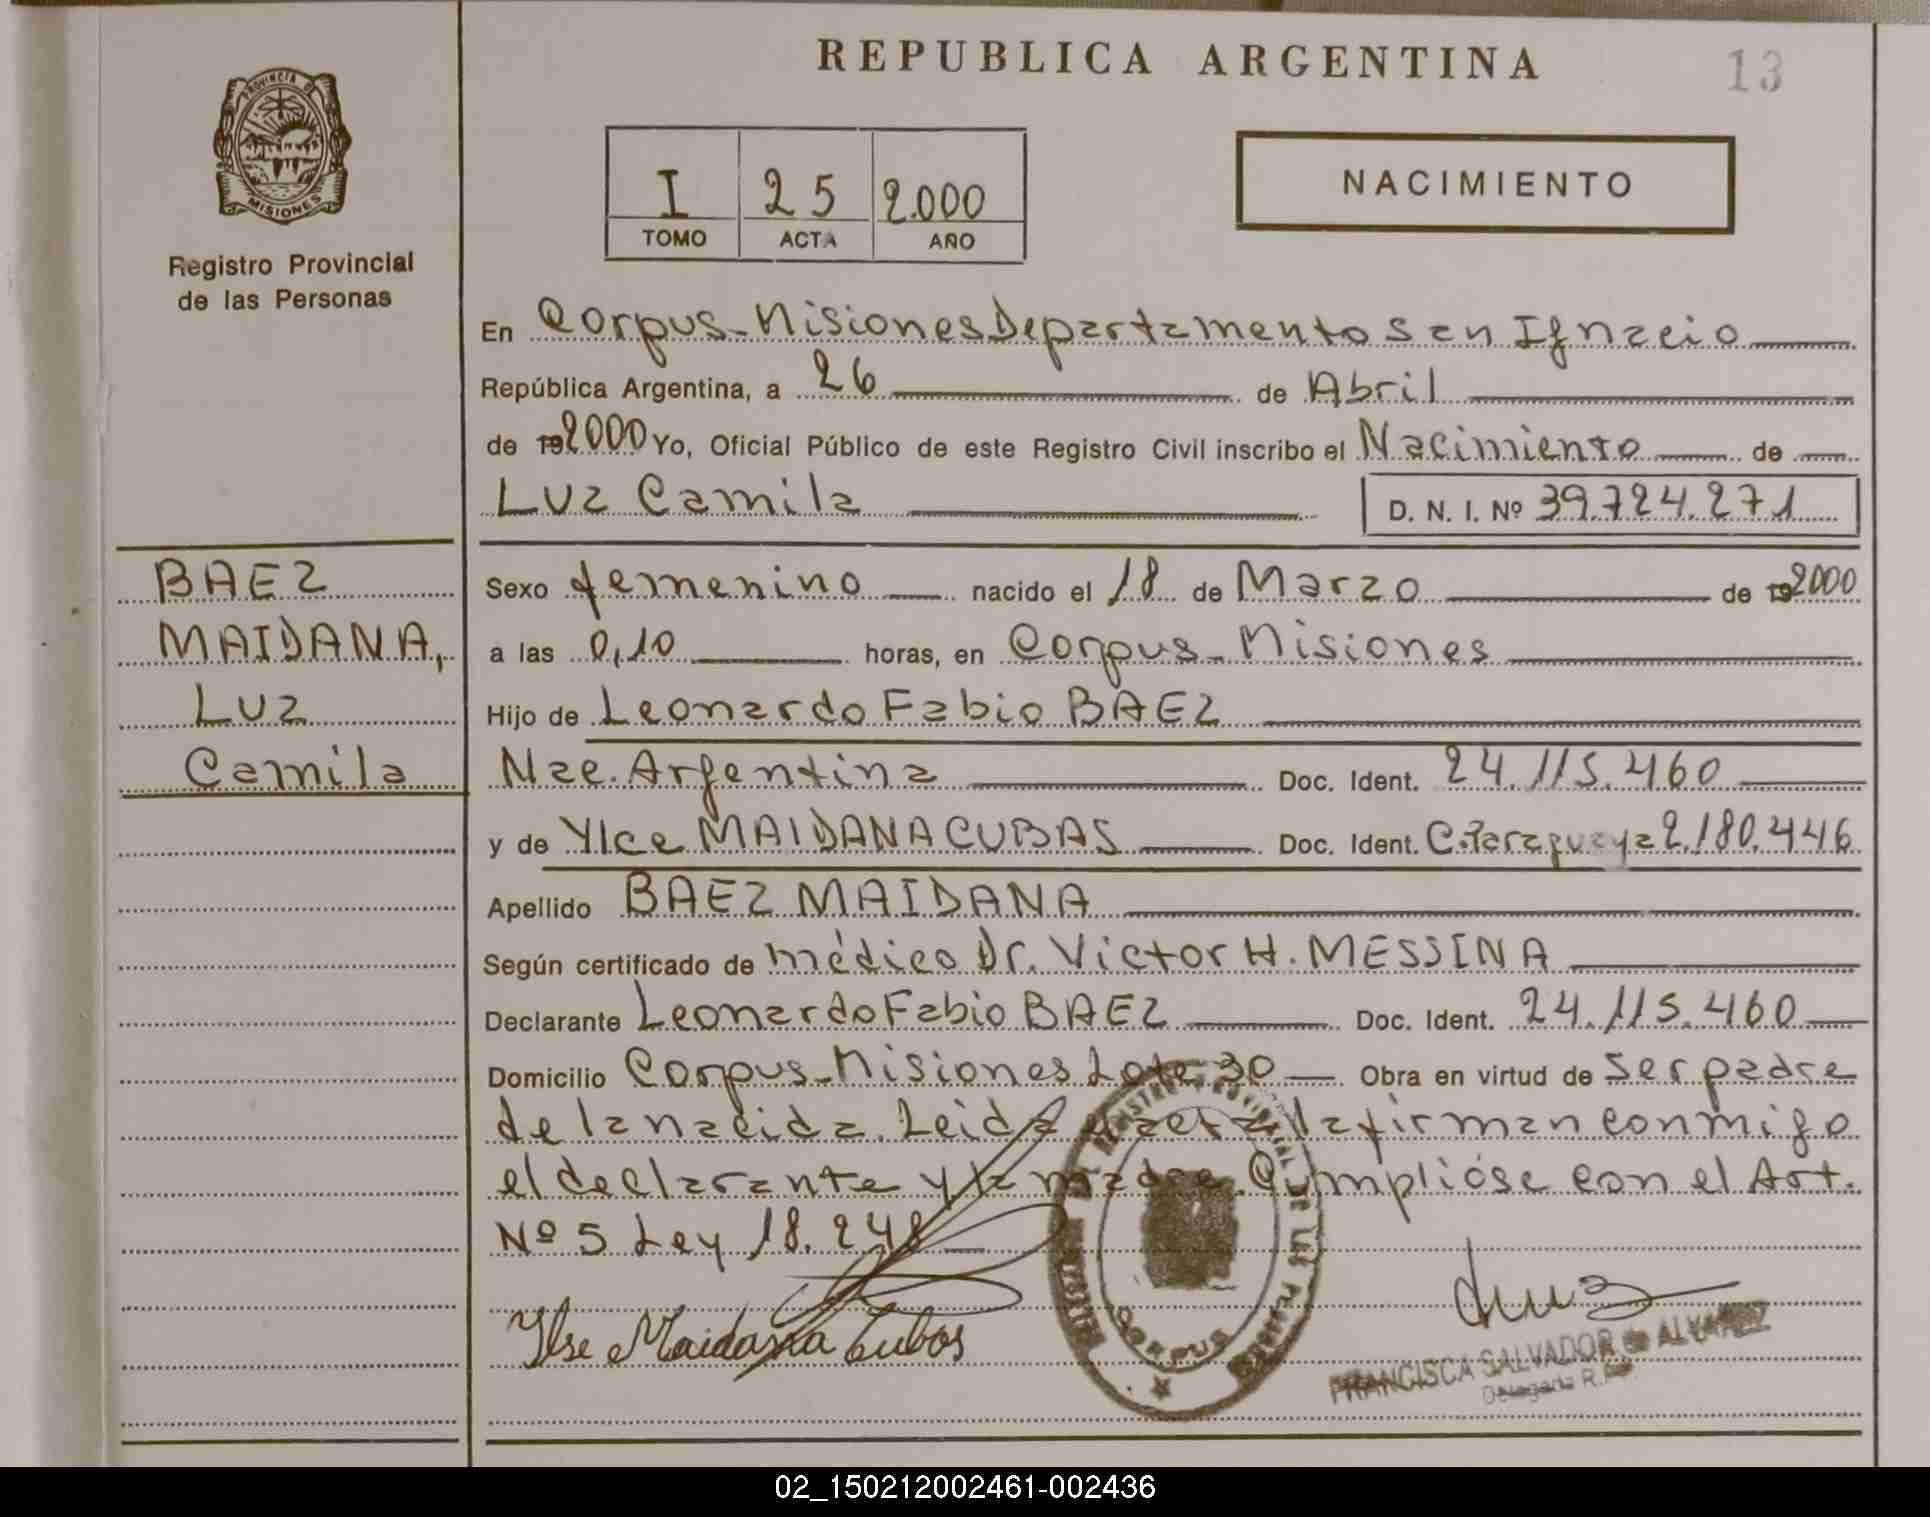 REPUBLICA ARGENTINA
13
PROVINCIA DE
MISIONES
Registro Provincial
de las Personas
I 25 2.000
TOMO ACTA AÑO
NACIMIENTO
En Corpus-Misiones Departamento San Ignacio
República Argentina, a 26 de Abril
de 192000 Yo, Oficial Público de este Registro Civil inscribo el Nacimiento de
Luz Camila D. N. I. Nº 39.724.271
BAEZ
MAIDANA,
Luz
Camila
Sexo femenino nacido el 18 de Marzo de 192000
a las 0,10 horas, en Corpus-Misiones
Hijo de Leonardo Fabio BAEZ
Nac. Argentina Doc. Ident. 24.115.460
y de Ylce MAIDANA CUBAS Doc. Ident. C.Paraguaya 2.180.446
Apellido BAEZ MAIDANA
Según certificado de médico Dr. Victor H. MESSINA
Declarante Leonardo Fabio BAEZ Doc. Ident. 24.115.460
Domicilio Corpus-Misiones Lote 30 Obra en virtud de ser padre
de la nacida. Leida el acta la firman conmigo
el declarante y la madre. Cumplióse con el Art.
Nº 5 Ley 18.248
Ylse Maidana Cubas
CORPUS
FRANCISCA SALVADOR de ALVAREZ
Delegada R.P.
02_150212002461-002436